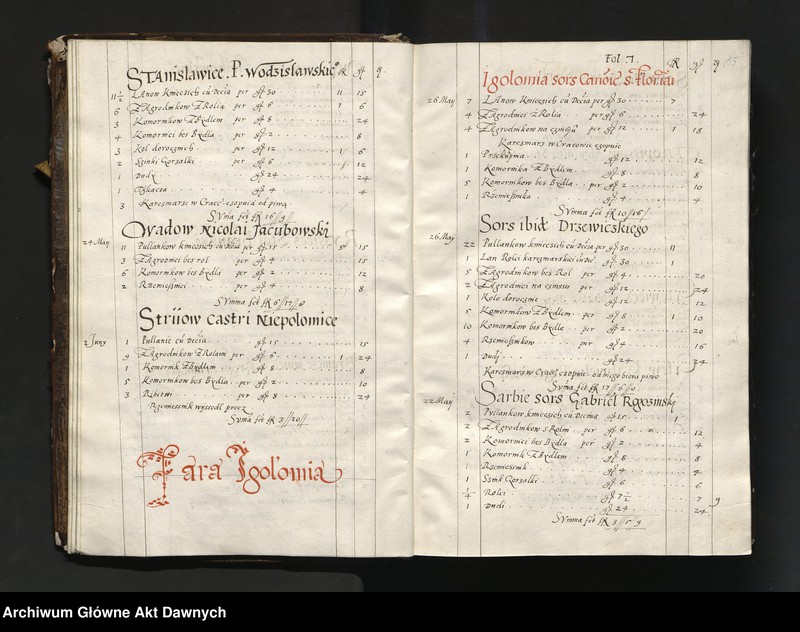 Stanisławice. P. Wodzisławskie° fR gſ 9
11½ Łanow Kmieczich cū Decīa per gſ 30 11 15
6 Zagrodnikow Z Roliā per gſ 6 1 6
3 Komornikow Z Bydłem per gſ 8 24
4 Komornici bes Bydła per gſ 2 8
3 Kol doroznich per gſ 12 1 6
2 Szinki Gorzalki per gſ 6 12
1 Dudy gſ 24 24
1 gſ 4 4
3 Karczmarze w Cracc czopuią od piwa
Sūma fet fR 16//9//
Owadow Nicolai Jacubowski
24 May 11 Pullankow kmieczich cū Decīa per gſ 15 5 15
3 Zagrodnici bes rol per gſ 4 15
6 Komornikow bes bydla per gſ 2 12
2 Rzemiesnici per gſ 4 8
Sūmma fet fR 6//17//0
Striiow castri Niepolomice
2 Juny 1 Pullanie cū Decīa gſ 15 15
9 Zagrodnikow Z Rolami per gſ 6 1 24
1 Komornik Z Bydlem gſ 8 8
5 Komornikow bes Bydla per gſ 2 10
3 per gſ 8 24
Rzemiesnik wyssedl precz
Sūma fet fR 3//20//
Para Igolomia
Fol 7. fR gſ 9
Igolomia sors Canōic S. Floriani
26 May 7 Łanow Kmieczich cū Decīa per gſ 30 7
4 Zagrodnici Z Rolia per gſ 6 24
4 Zagrodnikow na czinszu per gſ 12 1 18
Karczmarz w Cracowie czopuie
1 Przekupnia gſ 12 12
1 Komornika Z Bydlem gſ 8 8
5 Komornikow bes Bydla per gſ 2 10
1 Rzemiesnika gſ 4 4
Sūmma fet fR 10//16/
Sors ibid Drzewieczkiego
26 May 22 Pullankow kmieczich cū Decīa per gſ 30 11
1 Lan Rolei karczmarskiei cū De: gſ 30 1
5 Zagrodnikow bes Rol per gſ 4 20
2 Zagrodnici na czinszu per gſ 12 24
1 Kolo dorocznie gſ 12 12
5 Komornikow Z Bydlem per gſ 8 1 10
10 Komornikow bes Bydla per gſ 2 20
4 Rzemiesnikow per gſ 4 16
1 Dudy gſ 24 24
Karczmarz w czopuie od niego biora piwo
Sūma fet fR 17//6//0
Sarbie sors Gabriel Rgozinski
22 May 2 Pullankow kmieczich cū Decima gſ 15 1
2 Zagrodnikow s Rolm per gſ 6 12
2 Komornici bes Bydla per gſ 2 4
1 Komornik Z Bydlem gſ 8 8
1 Rzemiesnik gſ 4 4
1 Szink Gorzalki gſ 6 6
¼ Rolei gſ 7½ 7 9
1 Dudi gſ 24 24
Sūmma fet fR 3//5//9
Archiwum Główne Akt Dawnych